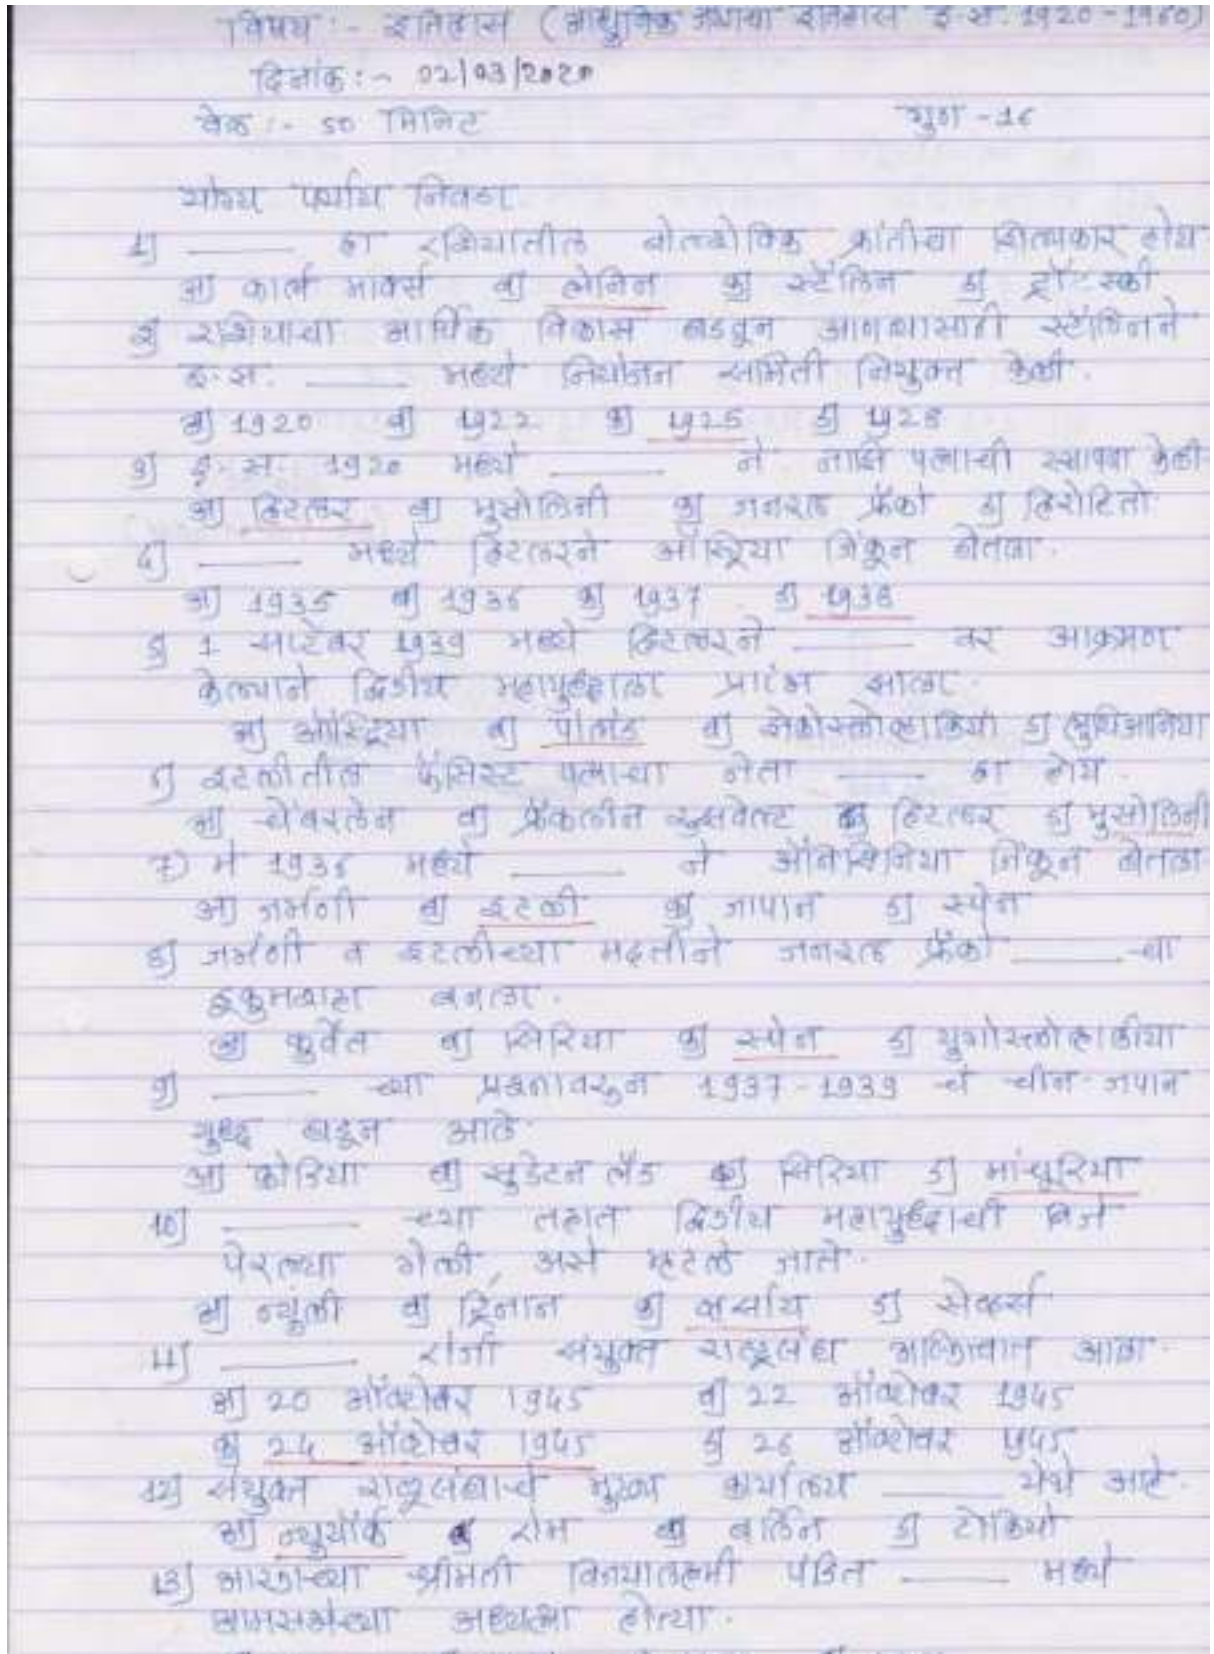 विषय :- इतिहास (आधुनिक जगाचा इतिहास इ.स. 1920-1960)
दिनांक :- 02/03/2020
वेळ :- 50 मिनिट गुण -16
योग्य पर्याय निवडा.
1] ____ हा रशियातील बोल्शेविक क्रांतीचा शिल्पकार होय
अ] कार्ल मार्क्स ब] लेनिन क] स्टॅलिन ड] ट्रॉटस्की
2] रशियाचा आर्थिक विकास घडवून आणण्यासाठी स्टॅलिनने
इ.स. ____ मध्ये नियोजन समिती नियुक्त केली.
अ] 1920 ब] 1922 क] 1925 ड] 1928
3] इ.स. 1920 मध्ये ____ ने नाझी पक्षाची स्थापना केली
अ] हिटलर ब] मुसोलिनी क] जनरल फ्रँको ड] हिरोहितो
4] ____ मध्ये हिटलरने ऑस्ट्रिया जिंकून घेतला.
अ] 1935 ब] 1936 क] 1937 ड] 1938
5] 1 सप्टेंबर 1939 मध्ये हिटलरने ____ वर आक्रमण
केल्याने द्वितीय महायुद्धाला प्रारंभ झाला.
अ] ऑस्ट्रिया ब] पोलंड क] झेकोस्लोव्हाकिया ड] लुथिआनिया
6] इटलीतील फॅसिस्ट पक्षाचा नेता ____ हा होय.
अ] चेंबरलेन ब] फ्रँकलीन रुझवेल्ट क] हिटलर ड] मुसोलिनी
7) मे 1936 मध्ये ____ ने अ‍ॅबिसिनिया जिंकून घेतला
अ] जर्मनी ब] इटली क] जापान ड] स्पेन
8] जर्मनी व इटलीच्या मदतीने जनरल फ्रँको ____ चा
हुकुमशहा बनला.
अ] कुवेत ब] सिरिया क] स्पेन ड] युगोस्लोव्हाकीया
9] ____ च्या प्रश्नावरून 1937-1939 चे चीन-जपान
युद्ध घडून आले.
अ] कोरिया ब] सुडेटन लँड क] सिरिया ड] मांचूरिया
10] ____ च्या तहात द्वितीय महायुद्धाची बिजे
पेरल्या गेली, असे म्हटले जाते.
अ] न्युली ब] ट्रिनान क] व्हर्साय ड] सेव्हर्स
11] ____ रोजी संयुक्त राष्ट्रसंघ अस्तित्वात आला.
अ] 20 ऑक्टोबर 1945 ब] 22 ऑक्टोबर 1945
क] 24 ऑक्टोबर 1945 ड] 26 ऑक्टोबर 1945
12] संयुक्त राष्ट्रसंघाचे मुख्य कार्यालय ____ येथे आहे.
अ] न्युयॉर्क ब रोम क] बर्लिन ड] टोकियो
13] भारताच्या श्रीमती विजयालक्ष्मी पंडित ____ मध्ये
आमसभेच्या अध्यक्षा होत्या.